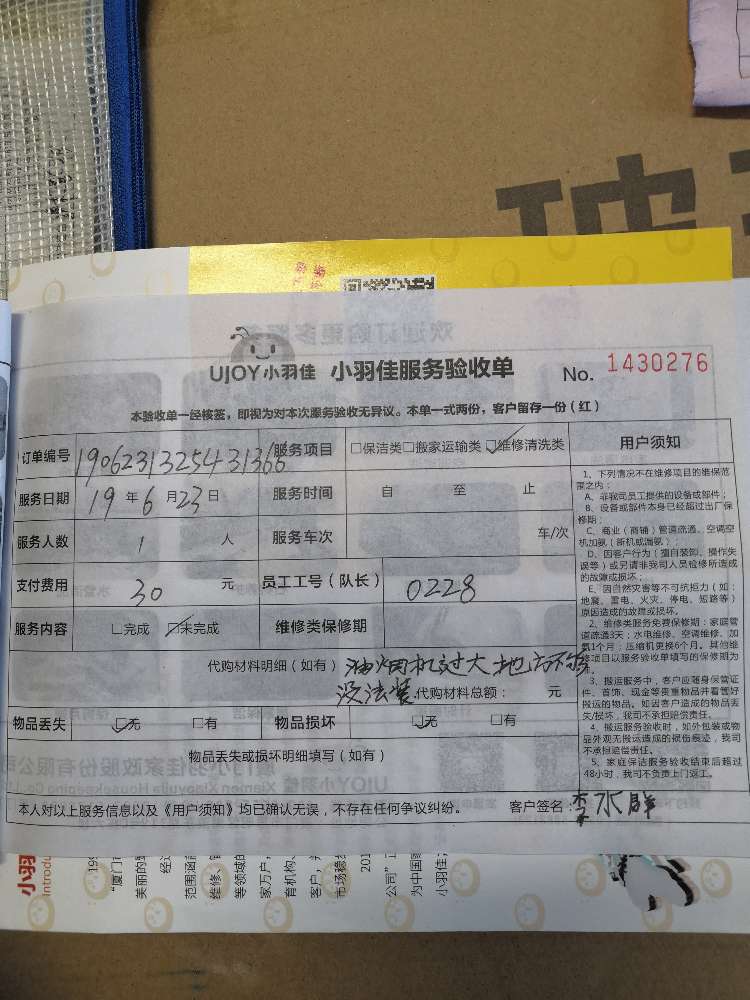 UJOY小羽佳 小羽佳服务验收单 No. 1430276
本验收单一经核签，即视为对本次服务验收无异议。本单一式两份，客户留存一份（红）
订单编号 19062313254431366 服务项目 □保洁类□搬家运输类☑维修清洗类 用户须知
服务日期 19年6月23日 服务时间 自 至 止
服务人数 1 人 服务车次 车/次
支付费用 30 元 员工工号（队长） 0228
服务内容 □完成 ☑未完成 维修类保修期
代购材料明细（如有） 油烟机过大地方不够
没法装 代购材料总额： 元
物品丢失 ☑无 □有 物品损坏 ☑无 □有
物品丢失或损坏明细填写（如有）
本人对以上服务信息以及《用户须知》均已确认无误，不存在任何争议纠纷。 客户签名：李水群
1、下列情况不在维修项目的维保范
围之内：
A、非我司员工提供的设备或部件；
B、设备或部件本身已经超过出厂保
修期；
C、商业（商铺）管道疏通、空调空
机加氨（新机或漏氨）；
D、因客户行为（擅自装卸、操作失
误等）或另请非我司人员检修所造成
的故障或损坏；
E、因自然灾害等不可抗拒力（如：
地震、雷电、火灾、停电、短路等）
原因造成的故障或损坏。
2、维修类服务免费保修期：家庭管
道疏通3天；水电维修、空调维修、加
氨1个月；压缩机更换6个月。其他维
修项目以服务验收单填写的保修期为
3、搬运服务中，客户应随身保管证
件、首饰、现金等贵重物品并看管好
搬运的物品。如因客户造成的物品丢
失/损坏，我司不承担赔偿责任。
4、搬运服务验收时，如外包装或物
品外观无搬运造成的损伤痕迹，我司
不承担赔偿责任。
5、家庭保洁服务验收结束后超过
48小时，我司不负责上门返工。
小羽
Introdu